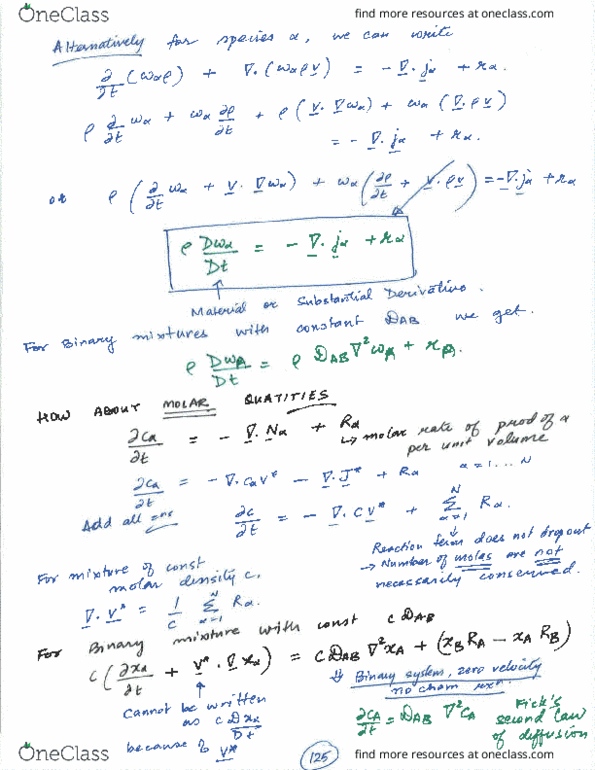 OneClass
find more resources at oneclass.com
Alternatively for species α, we can write
∂/∂t (ωαρ) + ∇·(ωαρv) = -∇·jα + rα
ρ ∂/∂t ωα + ωα ∂ρ/∂t + ρ(v·∇ωα) + ωα(∇·ρv)
= -∇·jα + rα.
or ρ(∂/∂t ωα + v·∇ωα) + ωα(∂ρ/∂t + ∇·ρv) = -∇·jα + rα
ρ Dωα/Dt = -∇·jα + rα
Material or Substantial Derivative.
For Binary mixtures with constant DAB we get.
ρ DωA/Dt = ρ DAB ∇²ωA + rA.
HOW ABOUT MOLAR QUATITIES
∂cα/∂t = -∇·Nα + Rα
↳ molar rate of prod of α
per unit volume
∂cα/∂t = -∇·cαv* - ∇·J* + Rα α=1...N
Add all
∂c/∂t = -∇·cv* + Σ(α=1, N) Rα.
Reaction term does not dropout
→ Number of moles are not
necessarily conserved.
For mixture of const
molar density c,
∇·v* = 1/c Σ(α=1, N) Rα.
For Binary mixture with const cDAB
c(∂xA/∂t + v*·∇xA) = cDAB ∇²xA + (xBRA - xARB)
Cannot be written
as c DxA/Dt
because of v*
⇓ Binary system, zero velocity
no chem rxn
∂cA/∂t = DAB ∇²CA
Fick's
second law
of diffusion
125
OneClass
find more resources at oneclass.com